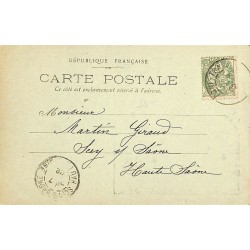 RÉPUBLIQUE FRANÇAISE
CARTE POSTALE
Ce côté est exclusivement réservé à l'adresse.
Monsieur
Martin Giraud
Scey s/ Saône
Haute Saône